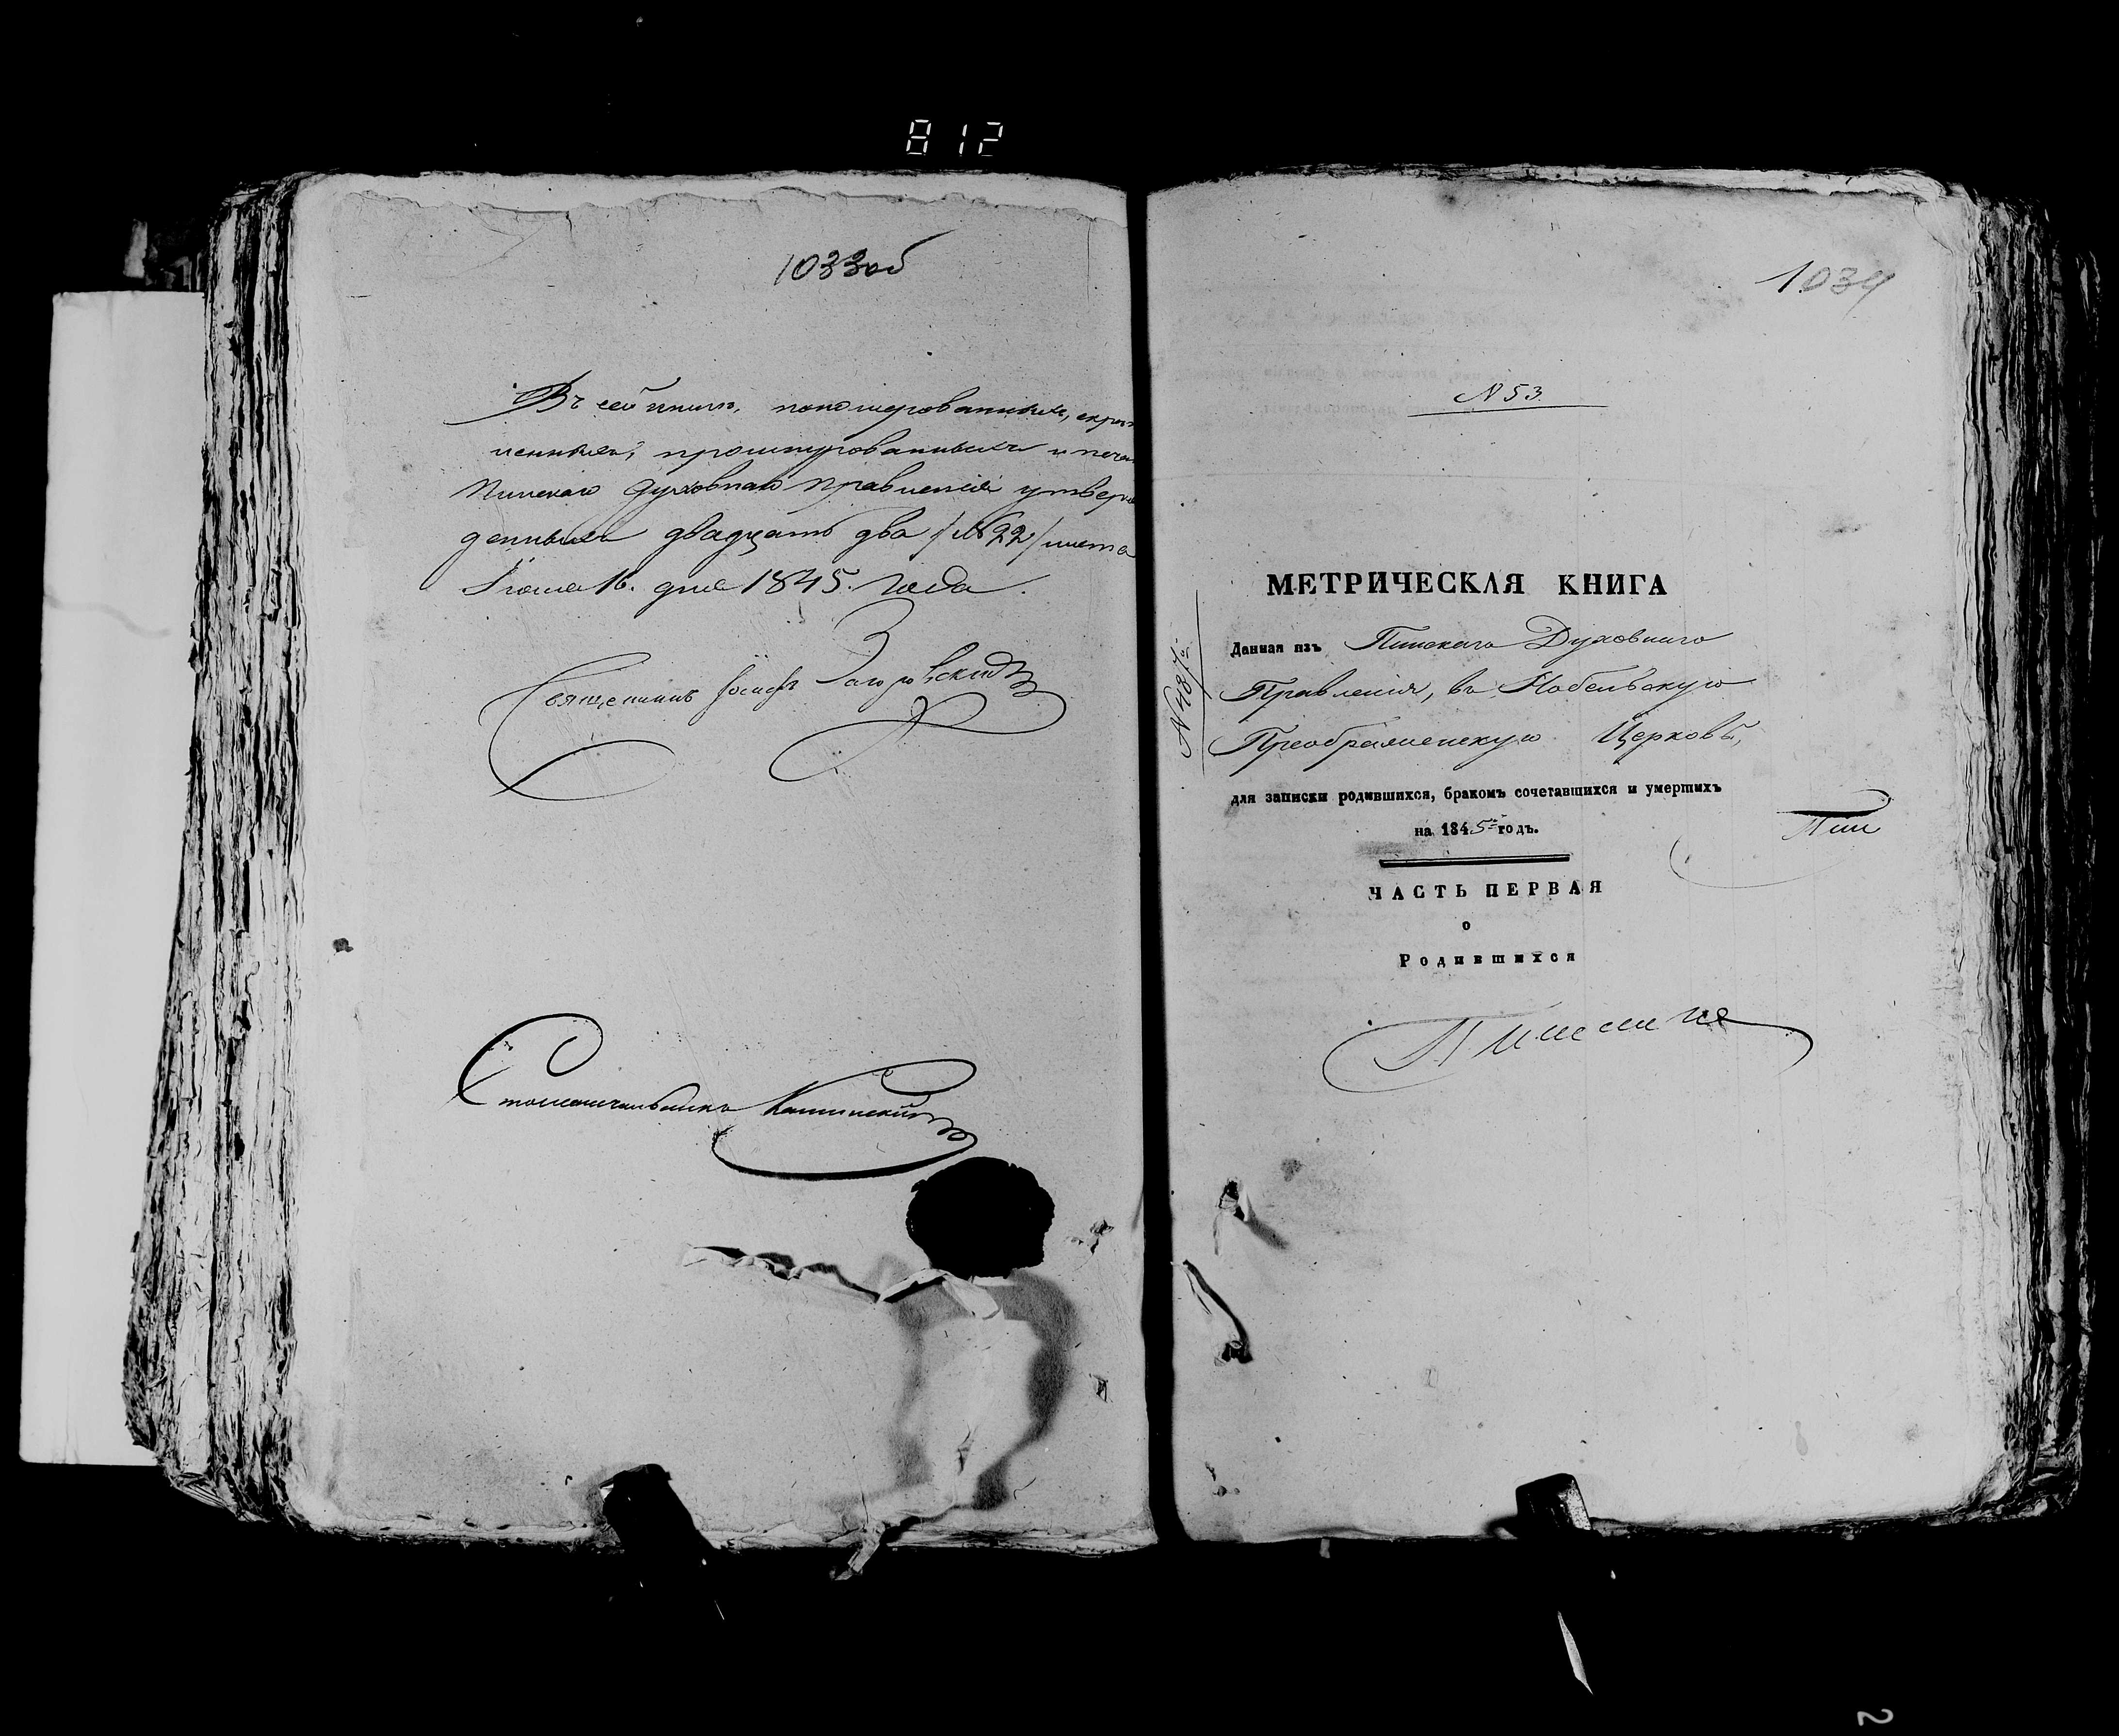 812
1033об
Въ сей книгѣ, пономерованныхъ, скрѣп
ленныхъ, прошнурованныхъ и печа
Пинскаго Духовнаго Правленія утверж
денныхъ двадцать два /№ 22/ листа
Іюня 16. дня 1845. года.
Священникъ Іосифъ Загоровскій
Столоначальникъ
1034
N 53.
МЕТРИЧЕСКАЯ КНИГА
Данная изъ Пинскаго Духовнаго
Правленія, въ Нобельскую
Преображенскую Церковь,
для записки родившихся, бракомъ сочетавшихся и умершихъ
на 1845 годъ.
ЧАСТЬ ПЕРВАЯ
о
Родившихся
2